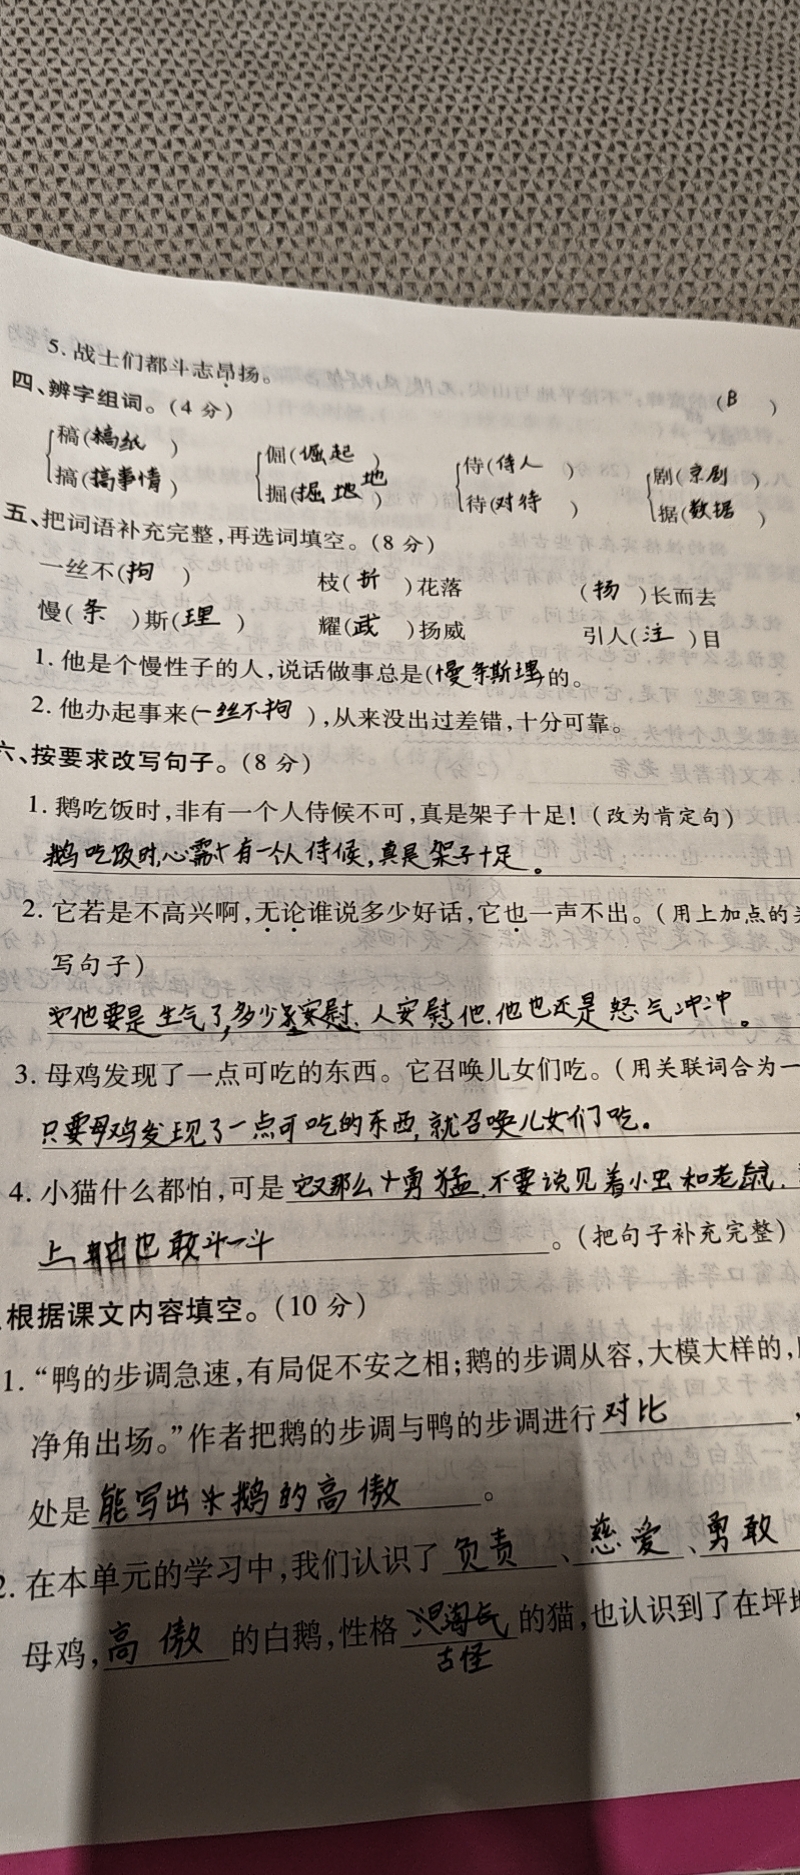 5. 战士们都斗志昂扬。
(B)
四、辨字组词。(4 分)
稿(稿纸) 倔(倔起) 侍(侍人) 剧(京剧)
搞(搞事情) 掘(掘地) 待(对待) 据(数据)
五、把词语补充完整,再选词填空。(8 分)
一丝不(拘) 枝(折)花落 (扬)长而去
慢(条)斯(理) 耀(武)扬威 引人(注)目
1. 他是个慢性子的人,说话做事总是(慢条斯理)的。
2. 他办起事来(一丝不拘),从来没出过差错,十分可靠。
六、按要求改写句子。(8 分)
1. 鹅吃饭时,非有一个人侍候不可,真是架子十足!(改为肯定句)
鹅吃饭时,心需有一个人侍候,真是架子十足。
2. 它若是不高兴啊,无论谁说多少好话,它也一声不出。(用上加点的
写句子)
他要是生气了,多少人安慰他,他也还是怒气冲冲。
3. 母鸡发现了一点可吃的东西。它召唤儿女们吃。(用关联词合为一
只要母鸡发现了一点可吃的东西,就召唤儿女们吃。
4. 小猫什么都怕,可是它又那么勇猛,不要说见着小虫和老鼠,
上蛇也敢斗一斗。(把句子补充完整)
根据课文内容填空。(10 分)
1. “鸭的步调急速,有局促不安之相;鹅的步调从容,大模大样的,
净角出场。”作者把鹅的步调与鸭的步调进行对比,
处是能写出鹅的高傲。
2. 在本单元的学习中,我们认识了负责、慈爱、勇敢
母鸡,高傲的白鹅,性格古怪的猫,也认识到了在坪地